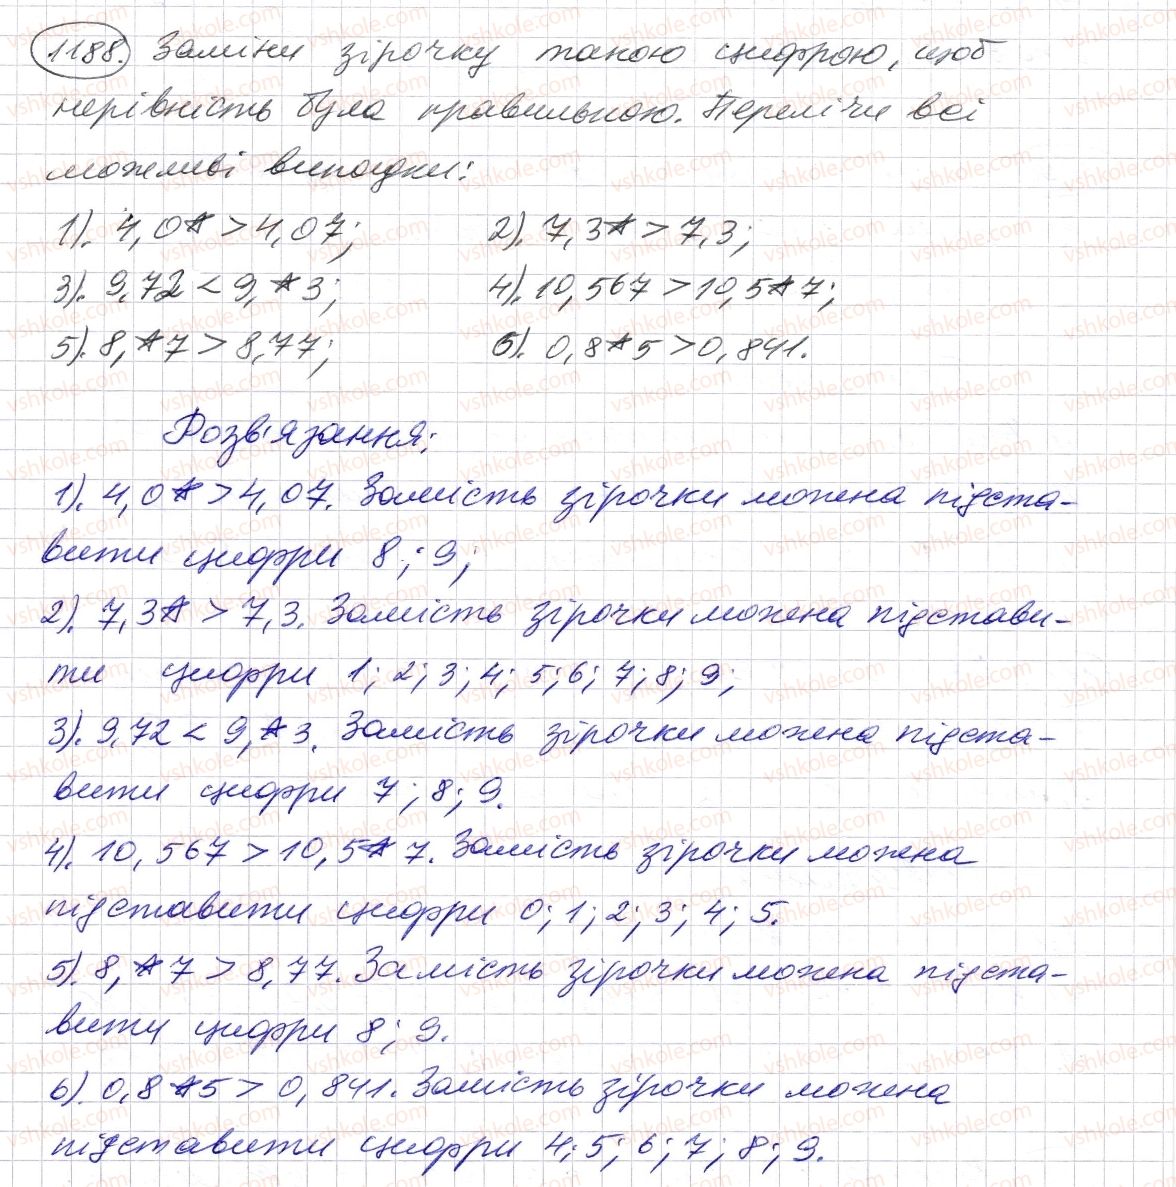 1188. Заміни зірочку такою цифрою, щоб
нерівність була правильною. Перелічи всі
можливі випадки:
1). 4,0* > 4,07; 2). 7,3* > 7,3;
3). 9,72 < 9,*3; 4). 10,567 > 10,5*7;
5). 8,*7 > 8,77; 6). 0,8*5 > 0,841.
Розв'язання:
1). 4,0* > 4,07. Замість зірочки можна підста-
вити цифри 8; 9;
2). 7,3* > 7,3. Замість зірочки можна підстави-
ти цифри 1; 2; 3; 4; 5; 6; 7; 8; 9;
3). 9,72 < 9,*3. Замість зірочки можна підста-
вити цифри 7; 8; 9.
4). 10,567 > 10,5*7. Замість зірочки можна
підставити цифри 0; 1; 2; 3; 4; 5.
5). 8,*7 > 8,77. Замість зірочки можна підста-
вити цифри 8; 9.
6). 0,8*5 > 0,841. Замість зірочки можна
підставити цифри 4; 5; 6; 7; 8; 9.